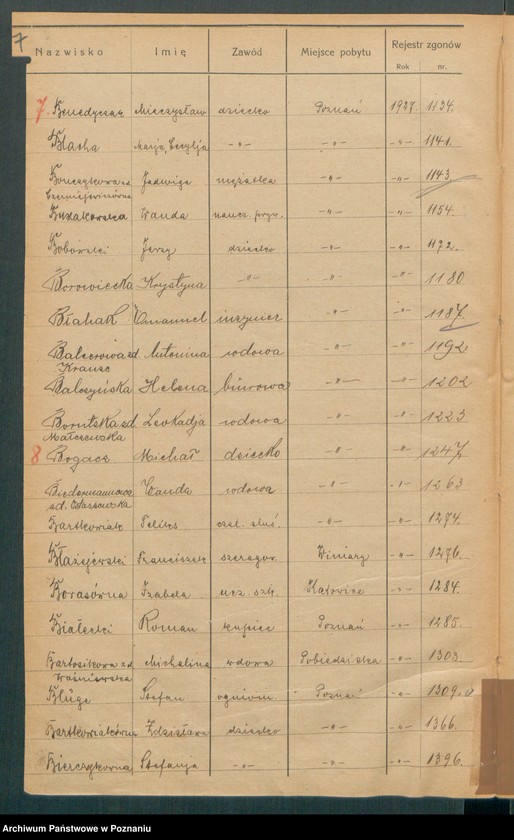 7
Nazwisko Imię Zawód Miejsce pobytu Rejestr zgonów
Rok nr.
7 Benedyczak Mieczysław dziecko Poznań 1927. 1134.
Blacha Marja, Cecylja -"- -"- -"- 1141.
Jadwiga mężatka -"- -"- 1143
Wanda naucz. pryw. -"- -"- 1154.
Boborski Jerzy dziecko -"- -"- 1172.
Borowiecka Krystyna -"- -"- -"- 1180
Błahak Emanuel inżynier -"- -"- 1187.
Balcerowa zd. Antonina wdowa -"- -"- 1192
Krause
Balszyńska Helena biurowa -"- -"- 1202
Borutska zd Leokadja wdowa -"- -"- 1223
Małczewska
8 Bogacz Michał dziecko -"- -"- 1247
Biedermannowa Wanda wdowa -"- -"- 1263
Bartkowiak Feliks czel. ślus. -"- -"- 1274.
Błażejewski Franciszek szeregow. Winiary -"- 1276.
Borasówna Izabela ucz. szk. Katowice -"- 1284.
Białecki Roman kupiec Poznań -"- 1285.
Bartosikowa zd Michalina wdowa Pobiedziska -"- 1303.
Kluge Stefan ogniom. Poznań -"- 1309.
Bartkowiakówna Zdzisława dziecko -"- -"- 1366.
Bierczykówna Stefanja -"- -"- -"- 1396.
Archiwum Państwowe w Poznaniu